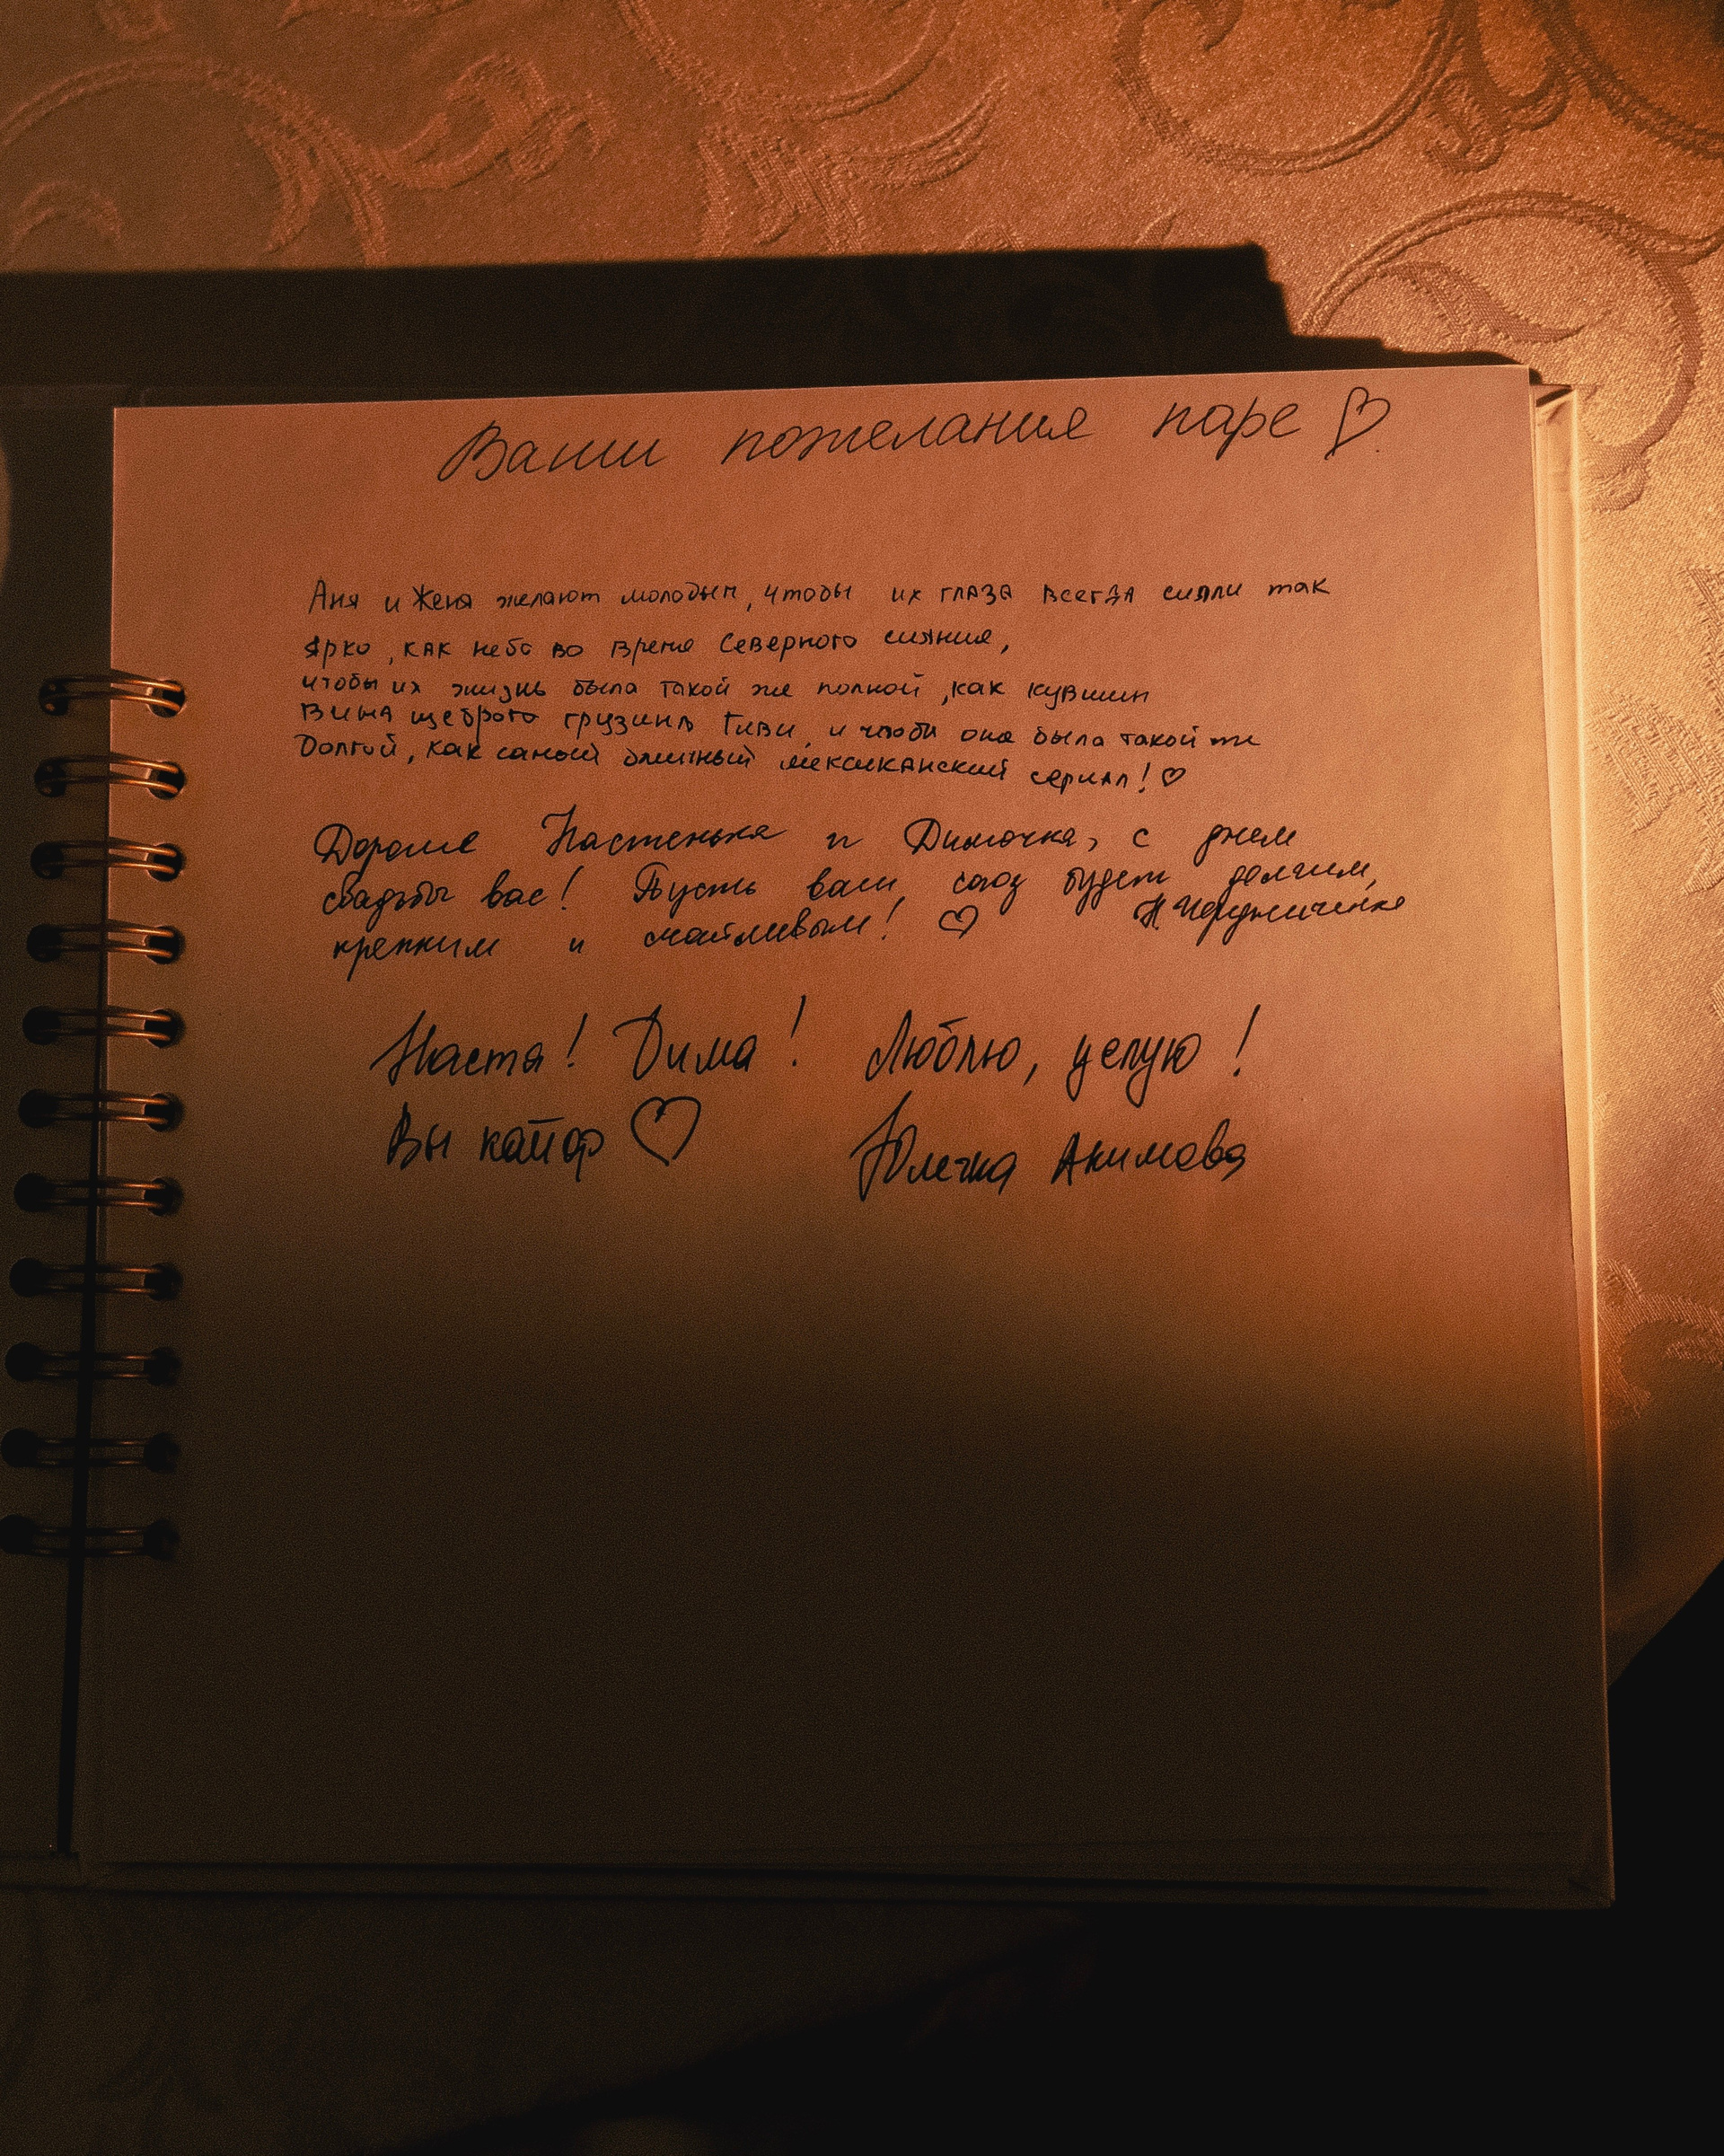 Ваши пожелания паре ♡
Аня и Женя желают молодым, чтобы их глаза всегда сияли так
ярко, как небо во время Северного сияния,
чтобы их жизнь была такой же полной, как кувшин
вина щедрого грузина Гиви, и чтобы она была такой же
долгой, как самый длинный мексиканский сериал! ♡
Дорогие Настенька и Димочка, с днем
свадьбы вас! Пусть ваш союз будет долгим,
крепким и счастливым! ♡
Настя! Дима! Люблю, целую!
Вы кайф ♡ Юлечка Акимова